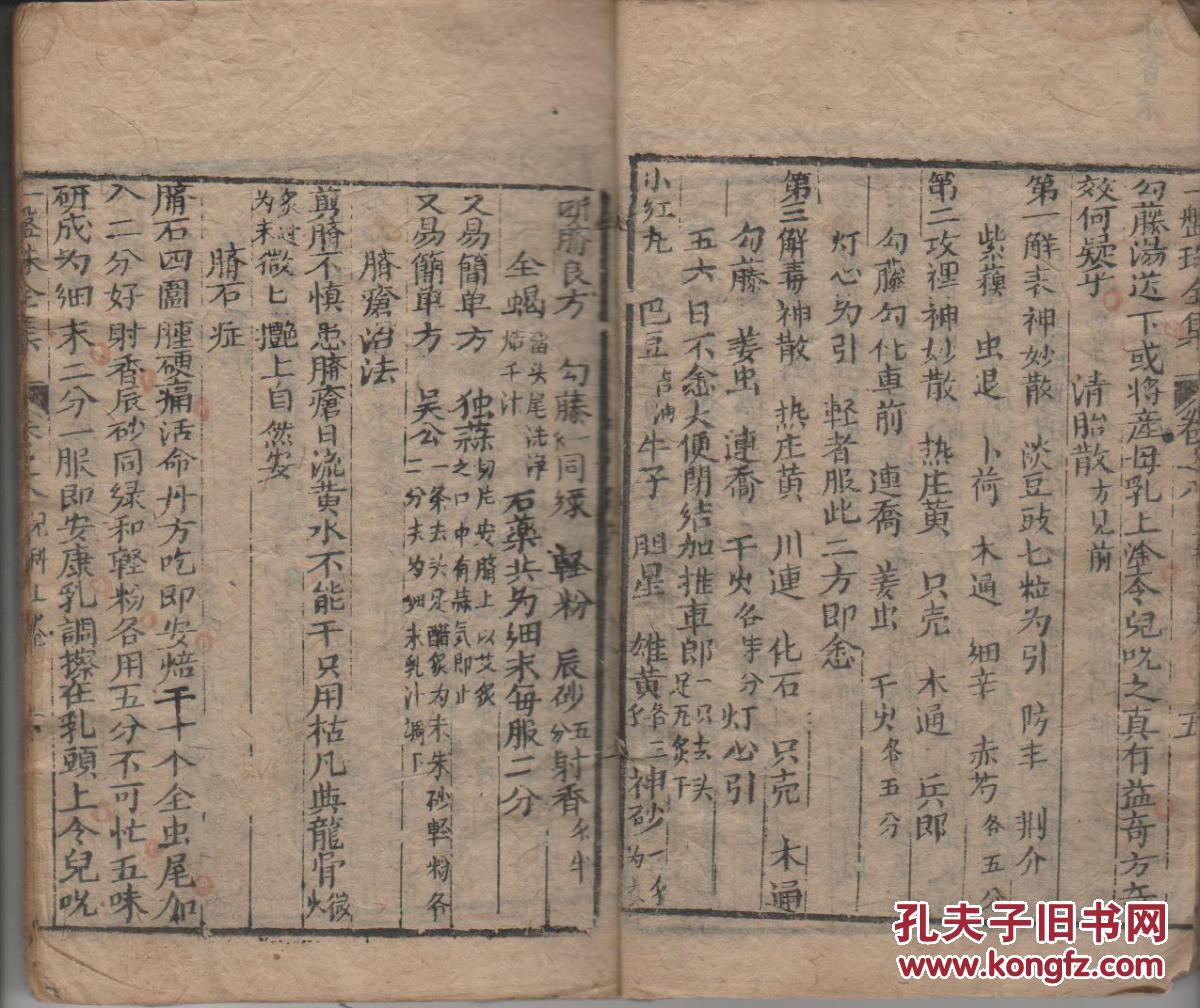 勾藤湯送下或将產母乳上塗令兒吮之真有益奇方在
效何疑乎 清胎散方見前
第一解表神妙散 淡豆豉七粒为引 防丰 荆介
紫蘓 虫退 卜荷 木通 细辛 赤芍各五分
第二攻裡神妙散 热庄黄 只壳 木通 兵郎
勾藤勾 化車前 連喬 姜虫 干火各五分
灯心为引 軽者服此二方即愈
第三解毒神散 热庄黄 川連 化石 只壳 木通
勾藤 姜虫 連喬 干火各 分 灯心引
五六日不愈大便閉結加推車郎一只去头足瓦炙下
小红丸 巴豆去油 牛子 胆星 雄黄各三 神砂一
断臍良方 勾藤 同绿 軽粉 辰砂五分 射香
全蝎留头尾洗净焙干汁 石藥共为细末每服二分
又易簡单方 独蒜切片安臍上以艾炙之口中有蒜気即止
又易簡单方 吴公一条去头足醋炙为末朱砂軽粉各二分去为细末乳汁調下
臍瘡治法
剪臍不慎患臍瘡日流黄水不能干只用枯凡典龍骨微火
炙过为末微匕 上自然安
臍石症
臍石四圍腫硬痛活命丹方吃即安焙干十个全虫尾加
入二分好射香辰砂同绿和輕粉各用五分不可忙五味
研成为细末二分一服即安康乳調擦在乳頭上令兒吮
一盤珠全集
孔夫子旧书网
www.kongfz.com